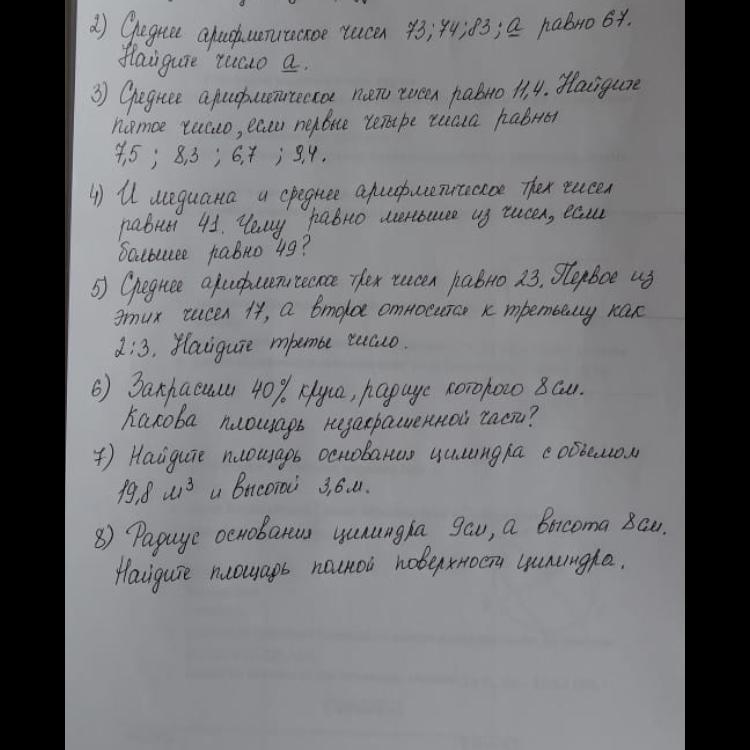 2) Среднее арифметическое чисел 73; 74; 83; а равно 67.
Найдите число а.
3) Среднее арифметическое пяти чисел равно 11,4. Найдите
пятое число, если первые четыре числа равны
7,5 ; 8,3 ; 6,7 ; 9,4.
4) И медиана и среднее арифметическое трех чисел
равны 41. Чему равно меньшее из чисел, если
большее равно 49?
5) Среднее арифметическое трех чисел равно 23. Первое из
этих чисел 17, а второе относится к третьему как
2:3. Найдите треты число.
6) Закрасили 40% круга, радиус которого 8 см.
Какова площадь незакрашенной части?
7) Найдите площадь основания цилиндра с объемом
19,8 м³ и высотой 3,6 м.
8) Радиус основания цилиндра 9см, а высота 8 см.
Найдите площадь полной поверхности цилиндра.